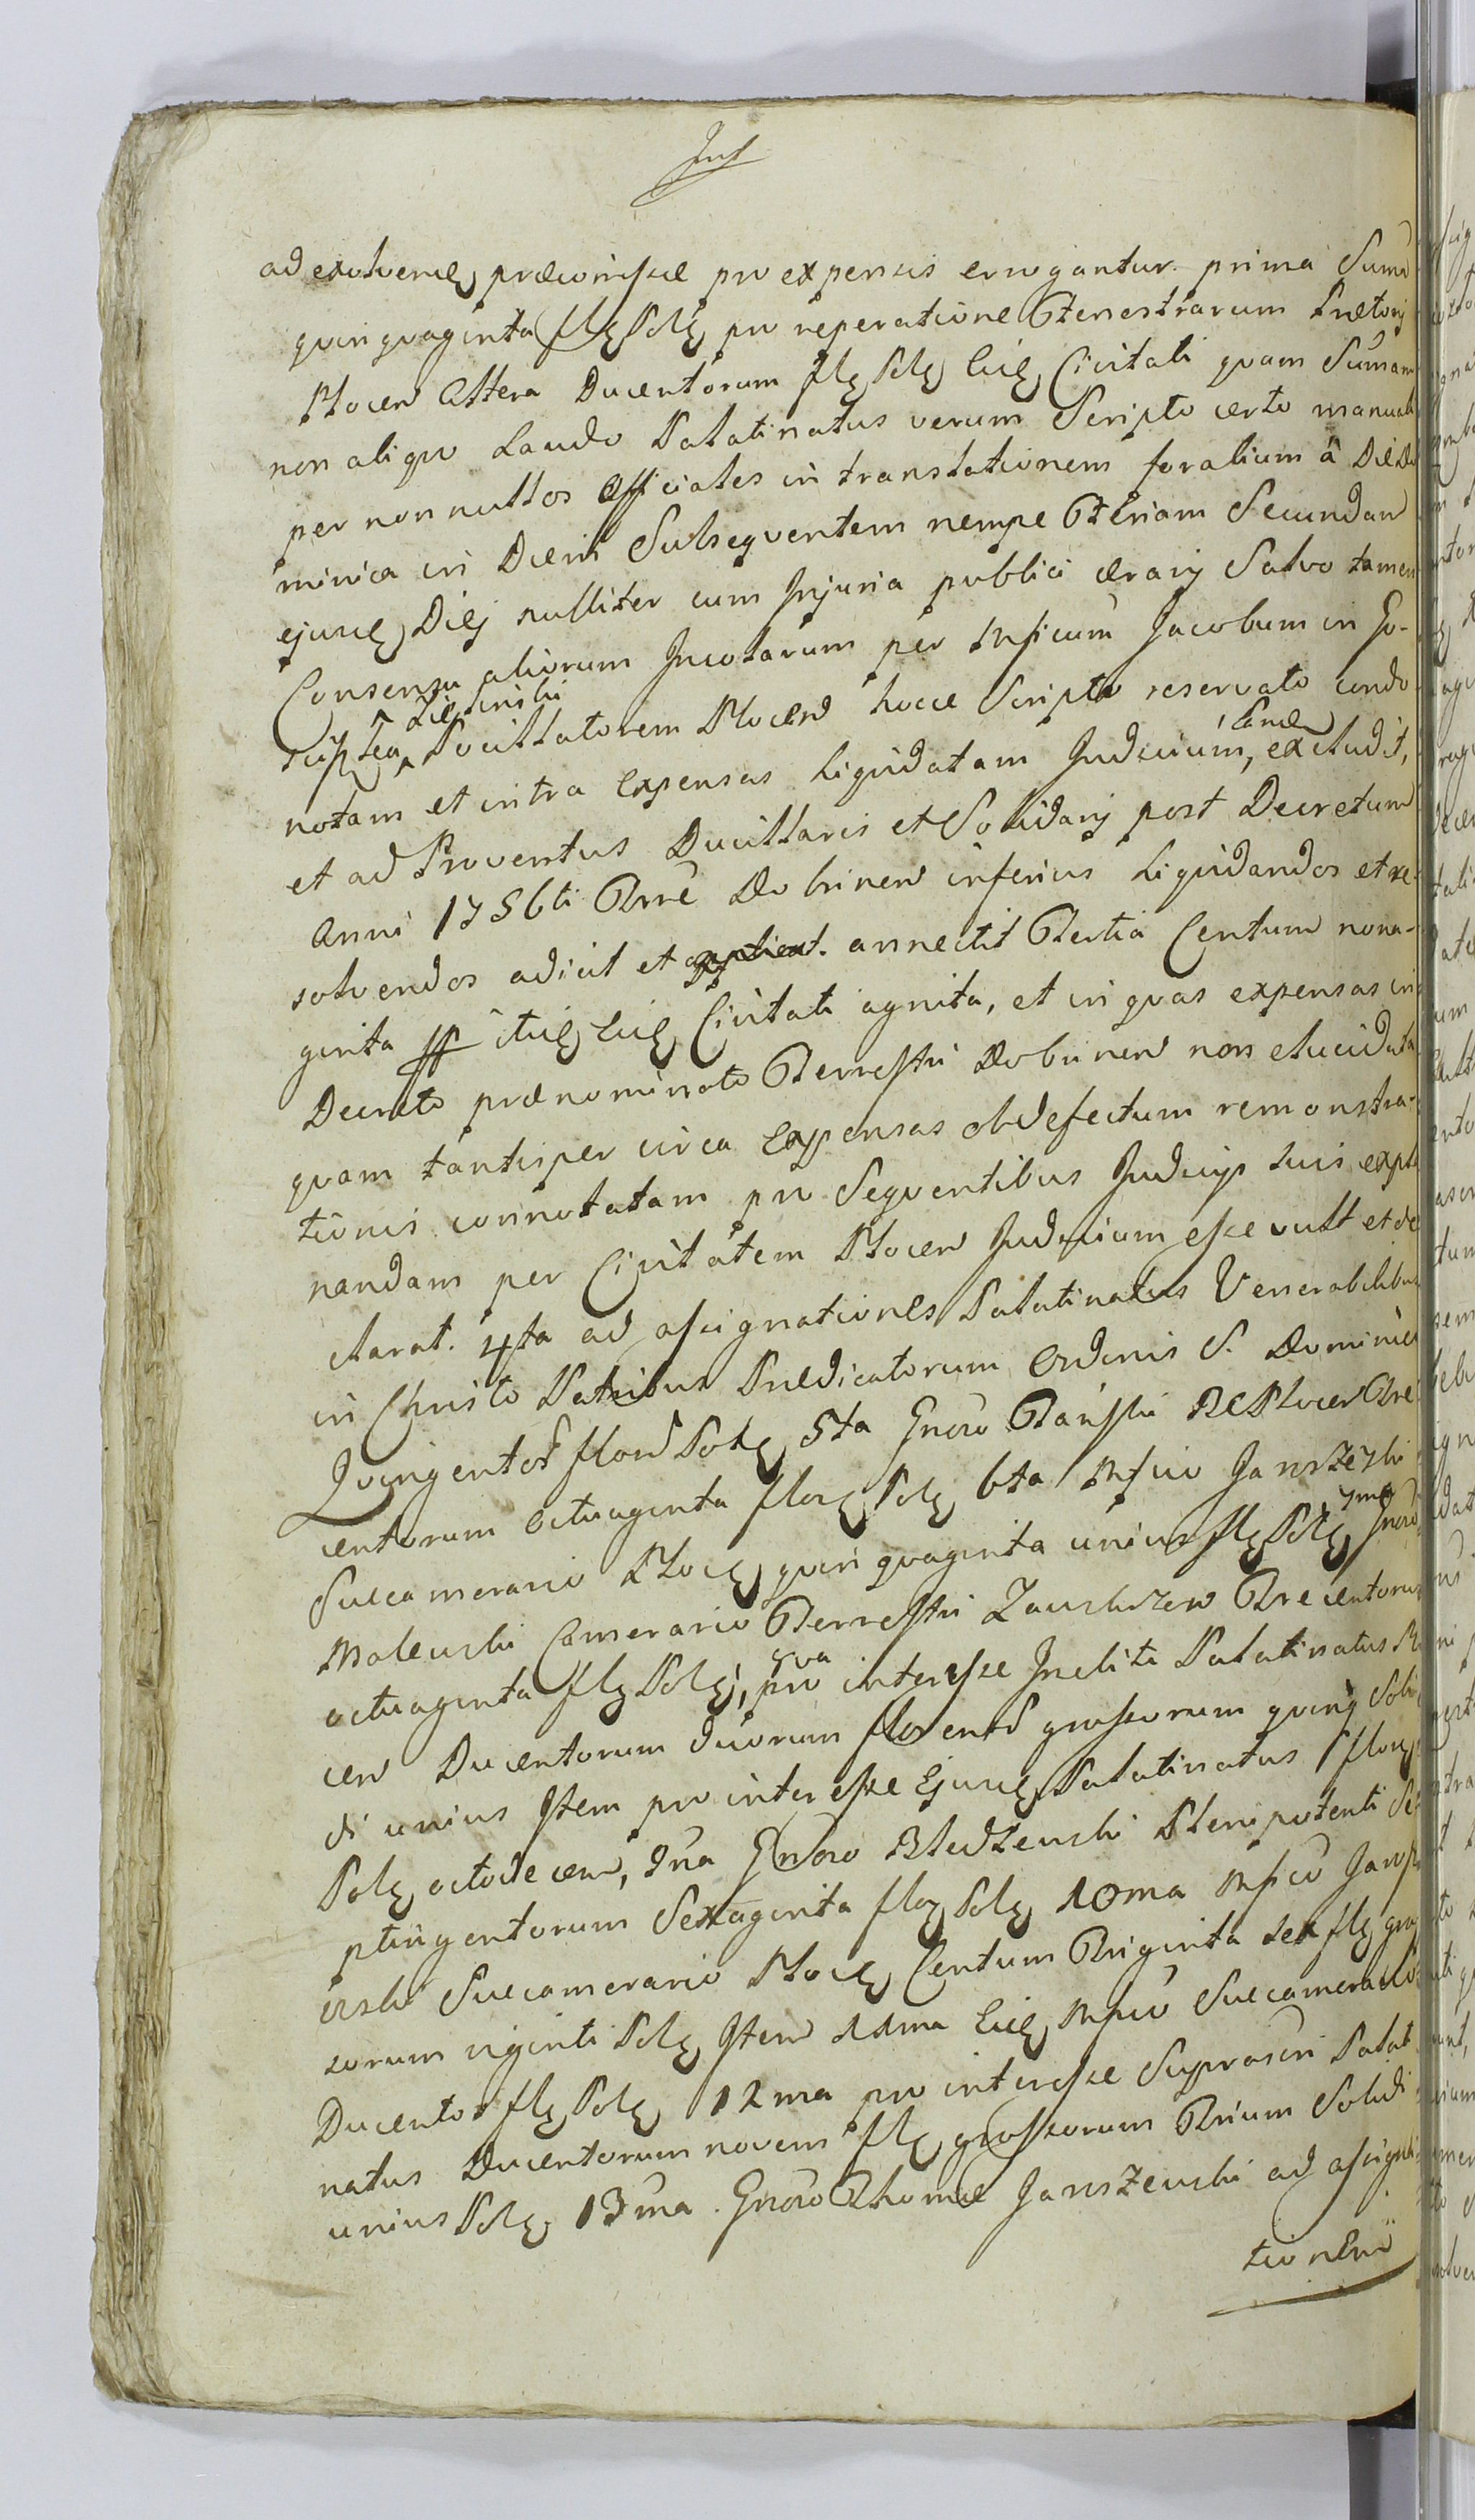 ad exolvenɖ præcursæ pro expensis erogantur prima Suma
quinquaginta flɖ Polɖ pro reperatione Fenestrarum Prætorij
Plocen Altera Ducentorum flɖ Polɖ Eiɖ Civitati quam Sumam
non aliquo Laudo Palatinatus verum Scripto certo manuali
per nonnullos Officiales in translationem foralium â Die Do
minica in Diem Subsequentem nempe Feriam Secundam
ejusɖ Diej nulliter cum Injuria publici ærarij Salvo tamen
Consensu aliorum Incolarum per Mficum Jacobum in Go-
Zieliński
Pocillatorem Plocen hocce Scripto reservato condo
notam et intra Expensas liquidatam Judicium, excludit,
et ad Proventus Ducillaris et Solidarij post Decretum
Anni 1756ti Trre Dobrinen inferius Liquidandos et re-
solvendos adicit et applicat. annectit Tertia Centum nona-
ginta ff Eiɖ Civitati agnita, et in quas expensas in
Decreto prænominato Terrestri Dobrinen non elucidata
quam tantisper circa Expensas ob defectum remonstra-
tionis connotatam pro Sequentibus Judicijs suis expla
nandam per Civitatem Plocen Judicium esse vult et de
clarat. 4ta ad assignationes Palatinatus Venerabilibus
in Christo Patribus Prædicatorum Ordinis S. Dominici
Quingentor floren Polɖ 5ta Gnoso Tański Plocen Tre
centorum octuaginta florɖ Polɖ 6ta Mfico Janszewski
Succamerario Plocɖ quinquaginta unius flɖ Polɖ 7ma Gnoso
Malewski Camerario Terrestri Zawskrzen Trecentorum
octuaginta flɖ Polɖ, 8va pro interesse Incliti Palatinatus Plo
cen Ducentorum duorum floren grossorum quinq Soli
di unius Item pro interesse Ejusɖ Palatinatus florɖ
Polɖ octodecem, 9na Gnoso Bledzewski Plenipotenti Se
ptingentorum Sexaginta florɖ Polɖ 10ma Mfico Jansz
ewski Succamerario Plocɖ Centum Triginta sex flɖ gros
sorum viginti Polɖ Item 11ma Eiɖ Mfico Succamerario
Ducentor flɖ Polɖ 12ma pro interesse Suprascri Palati
natus Ducentorum novem flɖ grossorum Trium Solidi
unius Polɖ 13ma Gnoso Thomæ Janszewski ad assigna
tionem